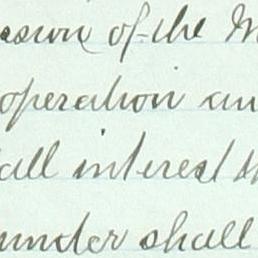 of the
operation an
all interest th
under shall